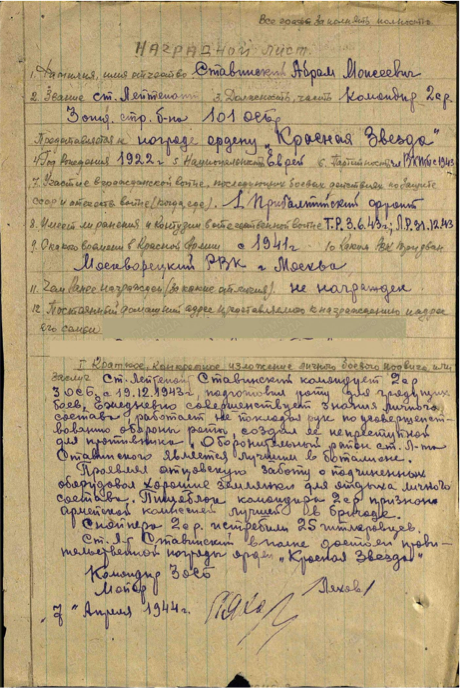 Все графы заполнять полностью
НАГРАДНОЙ ЛИСТ.
1. Фамилия, имя отчество Ставинский Абрам Моисеевич
2. Звание ст. Лейтенант 3. Должность, часть Командир 2ср.
3 стр. б-на 101 осбр
Представляется к награде ордену „Красная Звезда"
4 Год Рождения 1922 г 5 Национальность Еврей 6. Партийность ВКП(б) с 1943
7. Участие в гражданской войне, последующих боевых действиях по защите
СССР и отечеств. войне (когда, где). 1 Прибалтийский фронт
8. Имеет ли ранения и контузии в отечественной войне Т.Р. 3.6.43г; Л.Р. 31.12.43
9. С какого времени в Красной Армии с 1941 г 10 Каким РВК призван
Москворецкий РВК г Москва
11. Чем Ранее награжден (за какие отличия). не награжден
12. Постоянный домашний адрес представляемого к награждению и адрес
его семьи
I Краткое, конкретное изложение личного боевого подвига или
заслуг Ст. Лейтенант Ставинский командует 2ср
3 ОСБ с 19.12.1943г. подготовил роту для грядущих
боев, Ежедневно совершенствует знания личного
состава, работает не покладая рук по
обороны роты, создал ее неприступной
для противника, Оборонительный район ст. Л-та
Ставинского является лучшим в батальоне.
Проявляя отцовскую заботу о подчиненных
оборудовал хорошие землянки для отдыха личного
состава. Пищеблок командира 2ср признан
армейской комиссией лучшей в бригаде.
Снайпера 2ср. истребили 25 гитлеровцев.
Ст. Л-т Ставинский вполне достоин прави-
тельственной награды орден „Красная Звезда"
Командир 3осб
Майор Ляхов
„7" Апреля 1944 г.